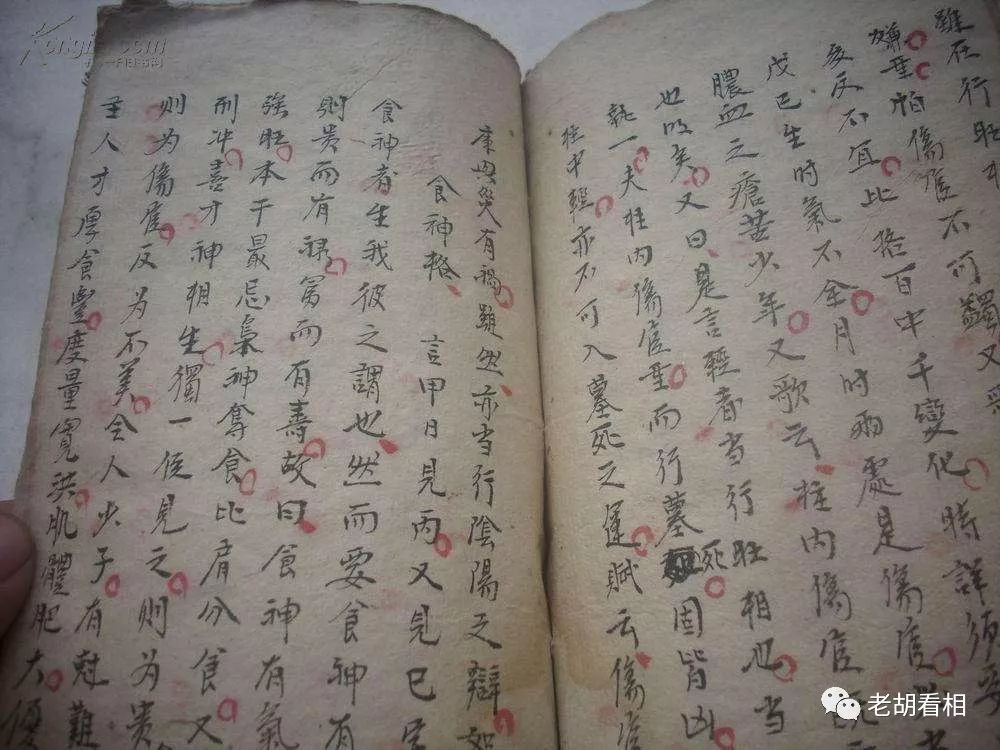 雖在行旺
傷重怕傷官不可蠲又
亥反不宜比格百中千變化時詳須
戊已生時氣不全月时兩處是傷官
膿血之瘡苦少年又歌云柱内傷官
也以矣又曰是言輕者当行旺相也当
執一夫柱内傷官重而行墓死固皆凶
柱中輕亦不可入墓死之運賦云傷官
庫毋災有禍雖然亦当行陰陽之辯
食神格 言甲日見丙又見巳
食神者生我彼之謂也然而要食神有
則贵而有祿富而有壽故曰食神有氣
強旺本干最忌梟神奪食比肩分食又
刑冲喜才神相生獨一位見之則为贵
則为傷官反为不美令人少子有尅難
主人才厚食豐度量寬洪肌體肥大優
老胡看相